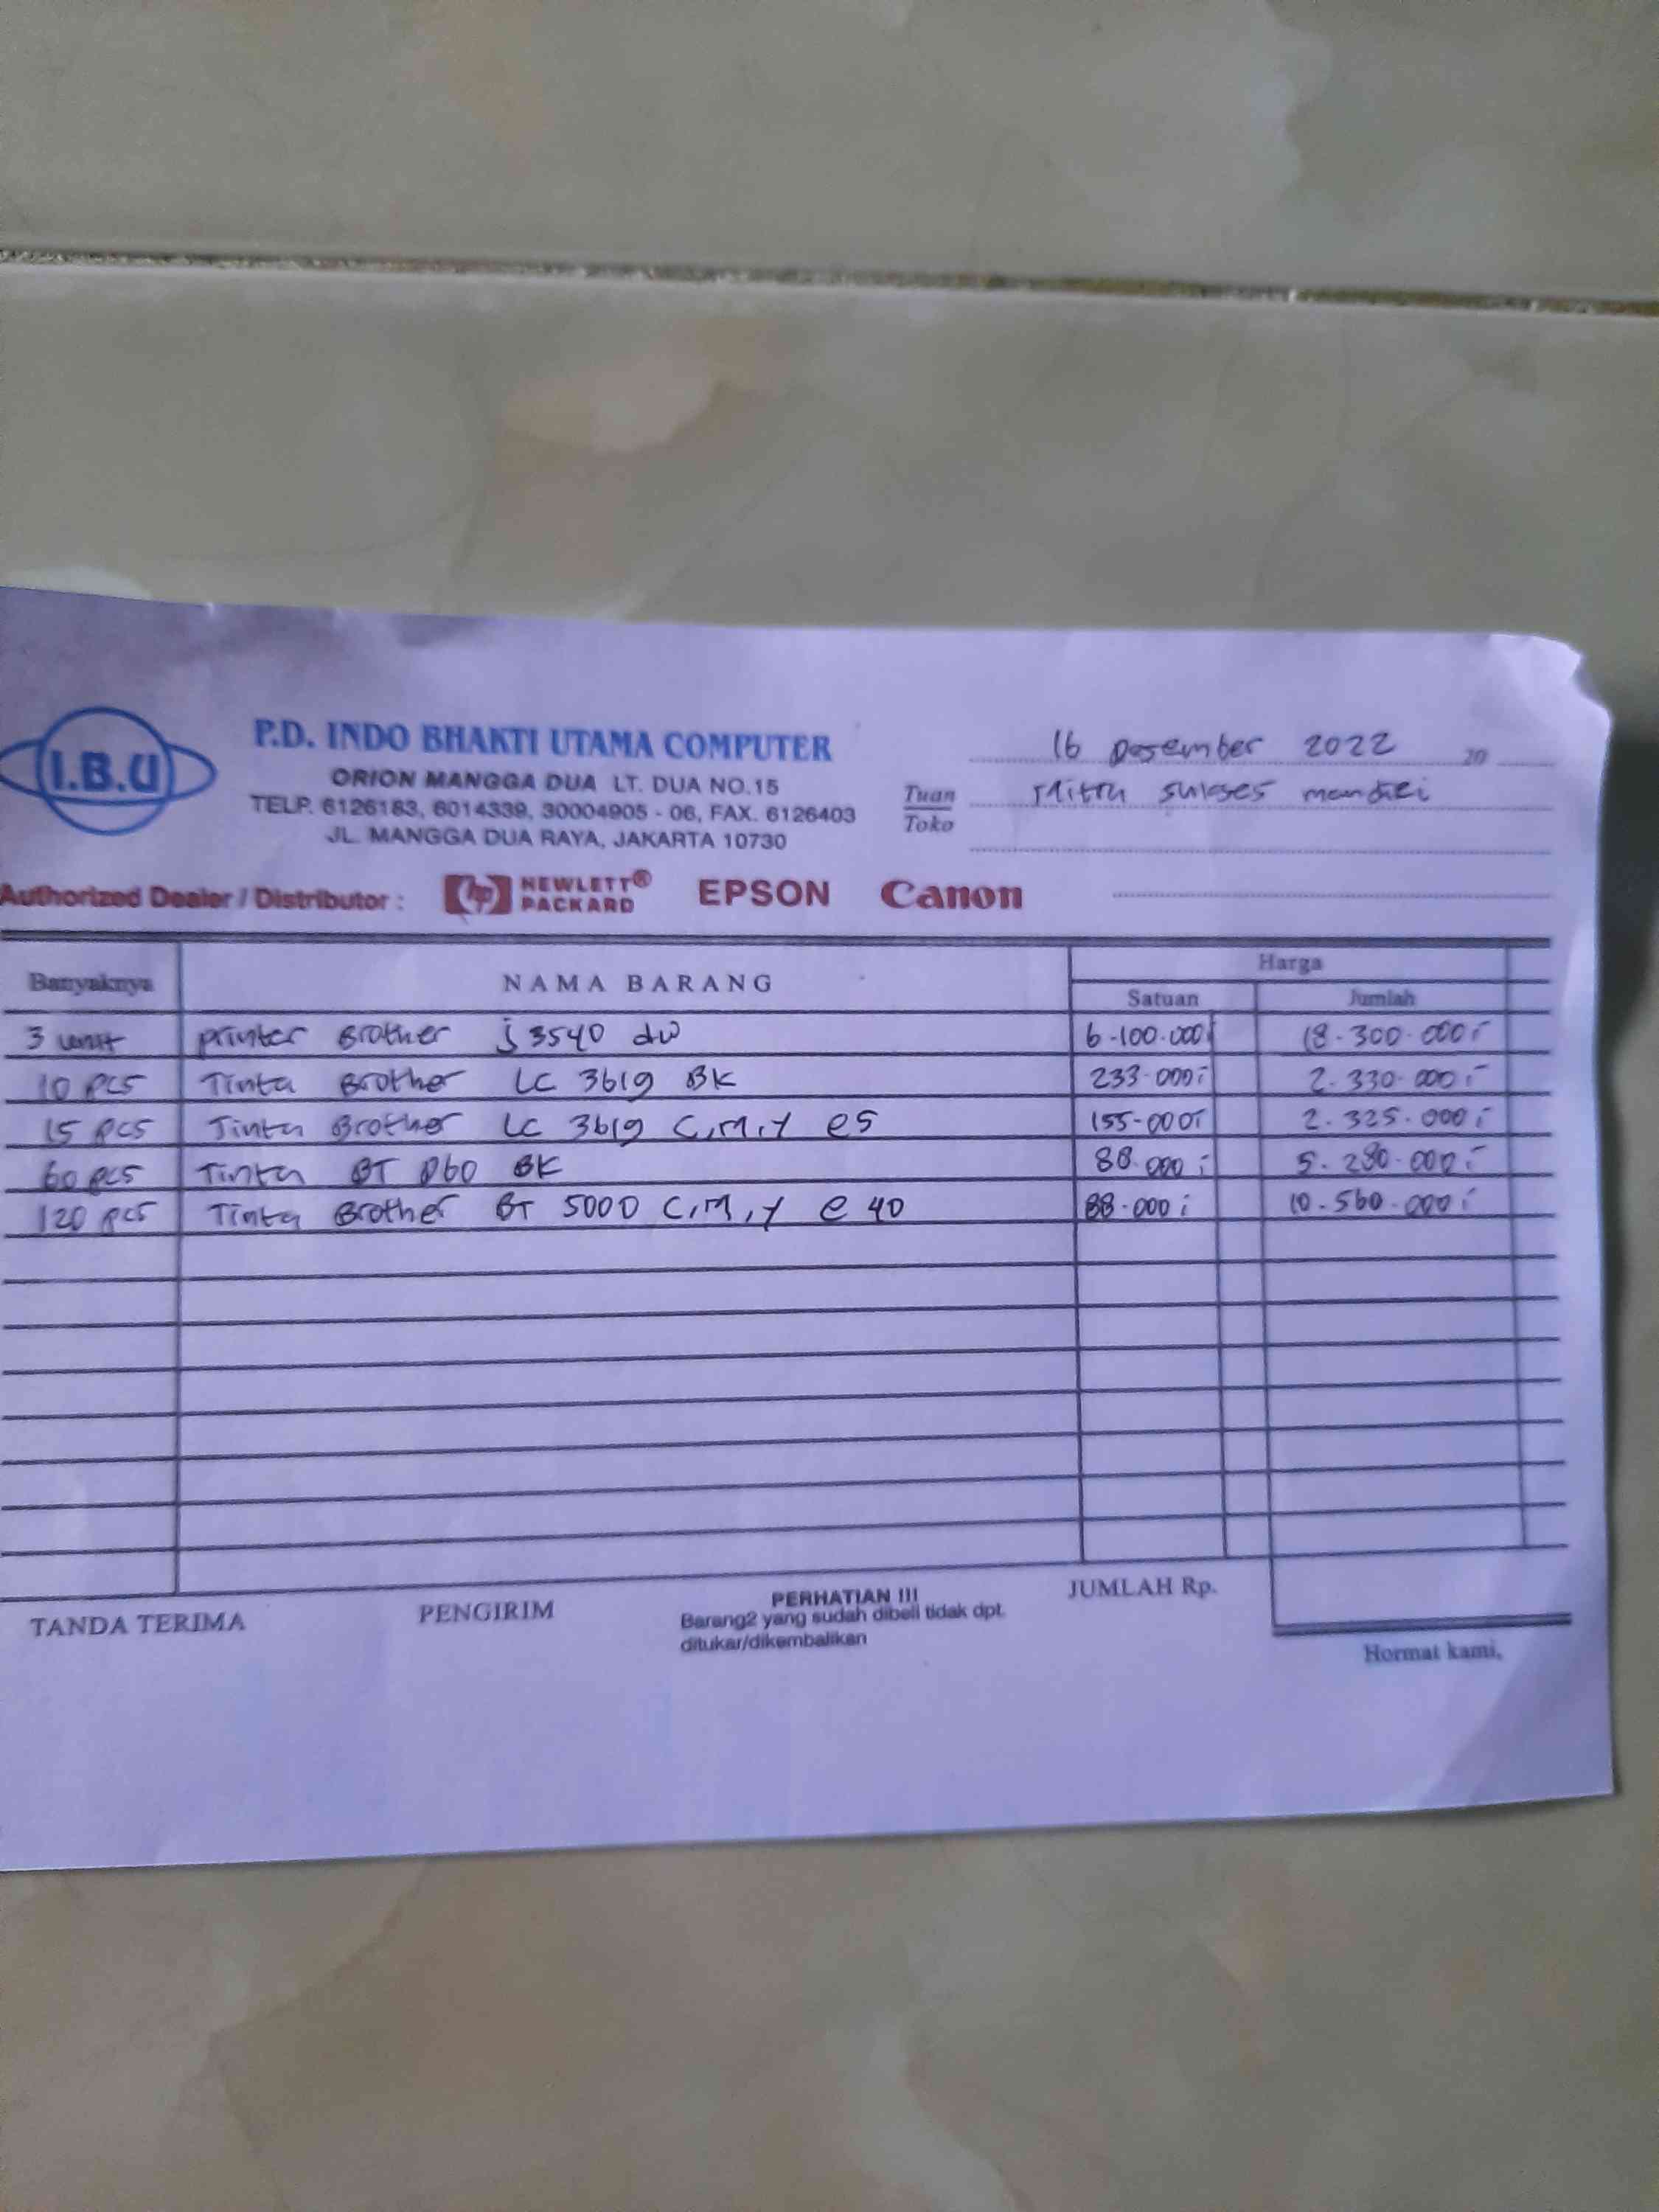 I.B.U
P.D. INDO BHAKTI UTAMA COMPUTER
ORION MANGGA DUA LT. DUA NO.15
TELP. 6126183, 6014339, 30004905 - 06, FAX. 6126403
JL. MANGGA DUA RAYA, JAKARTA 10730
16 Desember 2022 20
Tuan Mitra sukses mandiri
Toko
Authorized Dealer / Distributor : hp HEWLETT® PACKARD EPSON Canon
Banyaknya NAMA BARANG Harga
Satuan Jumlah
3 unit printer Brother j 3540 dw 6.100.000 18.300.000,-
10 pcs Tinta Brother LC 3619 BK 233.000,- 2.330.000,-
15 pcs Tinta Brother LC 3619 C,M,Y @5 155.000,- 2.325.000,-
60 pcs Tinta BT D60 BK 88.000,- 5.280.000,-
120 pcs Tinta Brother BT 5000 C,M,Y @ 40 88.000,- 10.560.000,-
TANDA TERIMA PENGIRIM PERHATIAN !!! JUMLAH Rp.
Barang2 yang sudah dibeli tidak dpt.
ditukar/dikembalikan
Hormat kami,